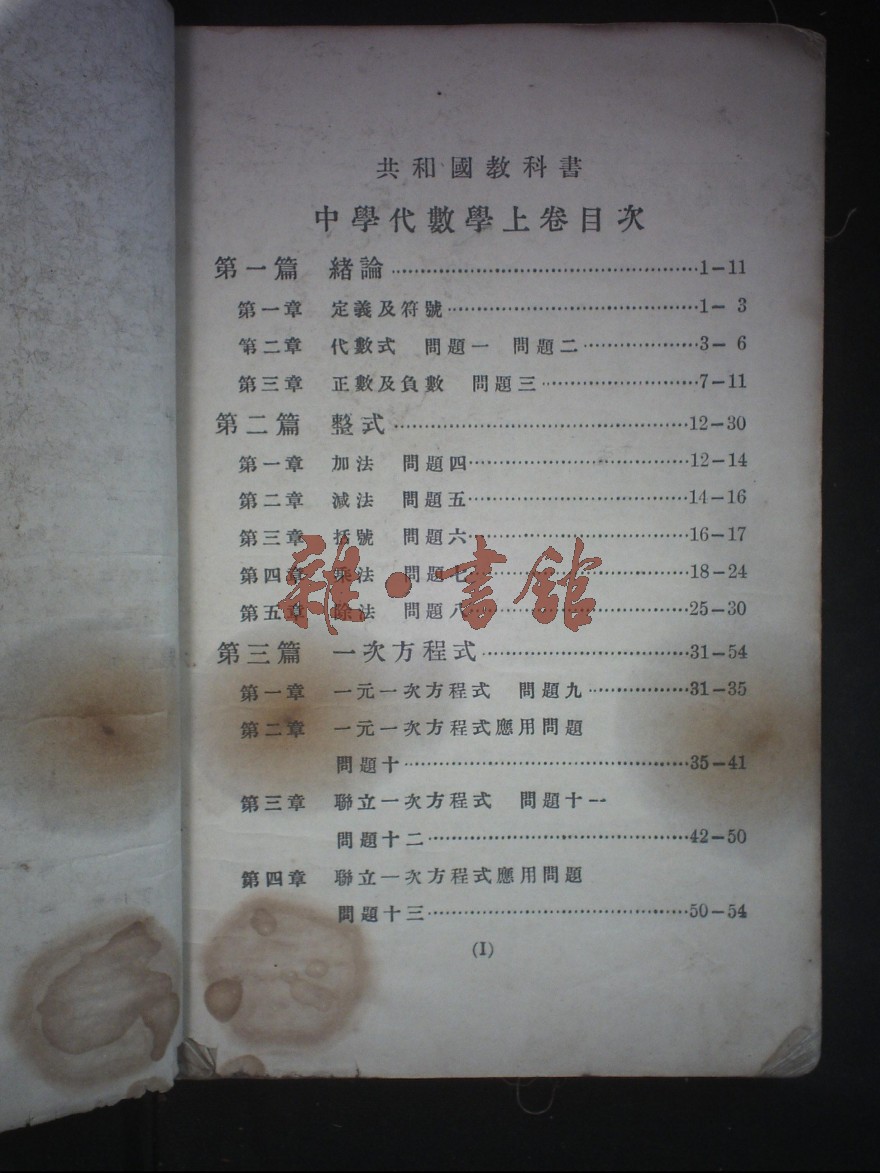 共和國教科書
中學代數學上卷目次
第一篇 緒論……1-11
第一章 定義及符號……1-3
第二章 代數式 問題一 問題二……3-6
第三章 正數及負數 問題三……7-11
第二篇 整式……12-30
第一章 加法 問題四……12-14
第二章 減法 問題五……14-16
第三章 括號 問題六……16-17
第四章 乘法 問題七……18-24
第五章 除法 問題八……25-30
雜·書館
第三篇 一次方程式……31-54
第一章 一元一次方程式 問題九……31-35
第二章 一元一次方程式應用問題
問題十……35-41
第三章 聯立一次方程式 問題十一
問題十二……42-50
第四章 聯立一次方程式應用問題
問題十三……50-54
(I)